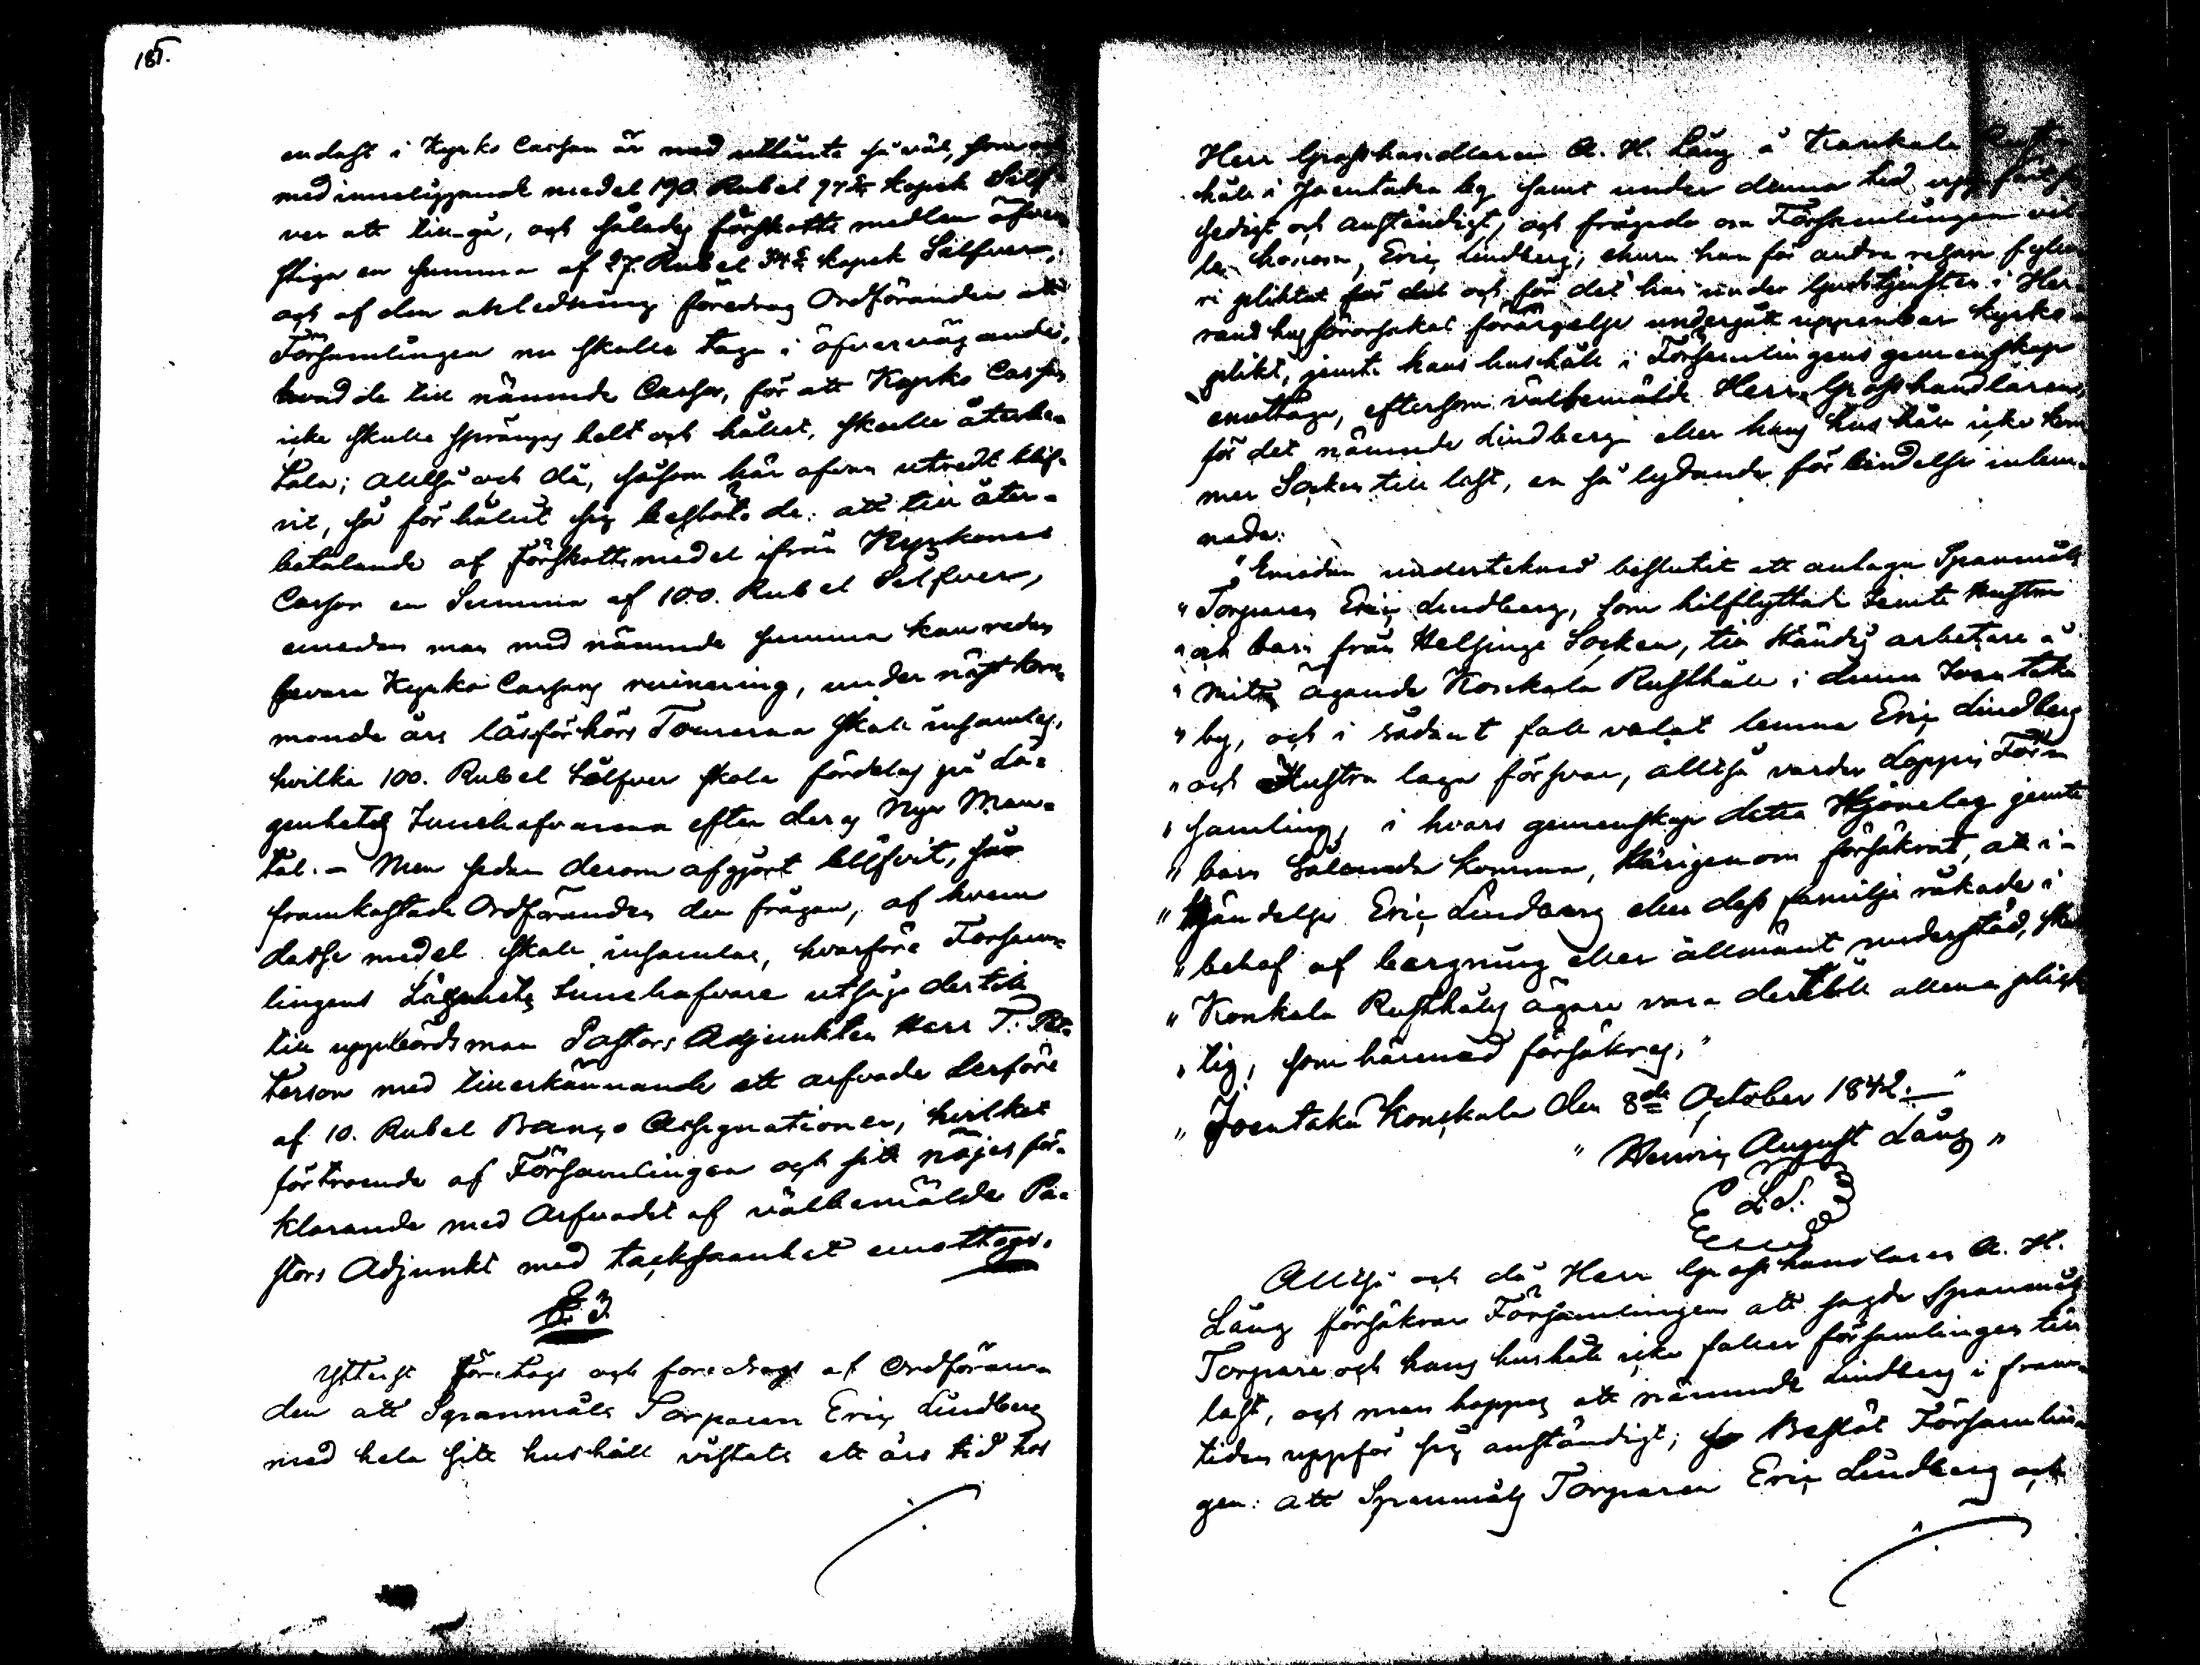 185.
endast i Kyrko Cassan är med utlånte så väl, som
med inneliggande medel 190. Rubel 97 kopek Silf
ver att till-gå, och således förskotts medlen öfver
stiga en summa af 27. Rubel 34 kopek Silfver,
och af den anledning föredrog Ordföranden att
Församlingen nu skulle taga i öfvervägande,
hvad de till nämnde Cassa, för att Kyrko Cassan
icke skulle sprängas helt och hållet, skulle återbe-
tala; Alltså och då, såsom här ofvan utredt blif-
vit, så förhållit sig beslöts de: att till åter-
betalande af förskottsmedel ifrån Kyrkones
Cassa en Summa af 100. Rubel Silfver,
emedan man med nämnde summa kan redan
Kyrko Cassans ruinering, under nästkom-
mande års läsförhörs Tourerna skall insamlas,
hvilka 100. Rubel Silfver skola fördelas på Lä-
genhets Innehafvarena efter deras Nya Man-
tal. - Men sedan derom afgjort blifvit, så
framkastade Ordföranden den frågan, af hvem
dessa medel skall insamlas, hvarföre Försam-
lingens Lägenhets Innehafvare utsågo dertill
till uppbördsman Pastors Adjunkten Herr T. Pet-
terson med tillerkännande ett arfvode derföre
af 10. Rubel Banco Assignationer, hvilket
förtroende af Församlingen och sitt nöjes för-
klarande med Arfvodet af välbemälde Pa-
stors Adjunkt med tacksamhet emottogs.
§. 3.
Ytterst företogs och foredrogs af Ordföran-
den att Spanmåls Torparen Eric Lindberg
med hela sitt hushåll vistats ett års tid hos
Herr Grosshandlaren A. H. Lång å Konkala Rust-
håll i Joentaka by samt under denna tid uppfört sig
sedigt och anständigt, och frågade om Församlingen vil-
le honom, Eric Lindberg, ehuru han för andra resan fylle-
ri pliktat för det och för det han under Gudstjensten i Her-
rans hus förorsakat förargelse undergått uppenbar Kyrko-
plikt, jemte hans hushåll i Församlingens gemenskap
emottaga, eftersom välbemälde Herr Grosshandlaren,
för det nämnde Lindberg eller hans hushåll icke kom-
mer Socken till last, en så lydande förbindelse inlem-
nade:
"Emedan undertecknad beslutit att antaga Spanmåls
"Torparen Eric Lindberg, som hitflyttade Jemte Hustru
"och barn från Helsinge Socken, till ständig arbetare å
"mitt ägande Konkala Rusthåll i denna Joentaka
"by, och i sådant fall velat lemna Eric Lindberg
"och Hustru laga försvar, alltså varder Loppis För-
"samling, i hvars gemenskap detta Hjonelag jemte
"barn sålunda komma, härigenom försäkrat, att i-
"händelse Eric Lindberg eller dess familje råkade i
"behof af bergning eller allmänt understöd, skall
"Konkala Rusthålls ägare vara dertill allena plig-
"tig, som härmed försäkras."
"Joentaka Konkala den 8de October 1842.—"
"Henric August Lång"
L.S.
Alltså och då Herr Grosshandlaren A. H.
Lång försäkrar Församlingen att sagde Spanmåls
Torpare och hans hushåll icke faller församlingen till
last, och man hoppas att nämnde Lindberg i fram-
tiden uppför sig anständigt; så Beslöt Församlin-
gen: att Spanmåls Torparen Eric Lindberg och